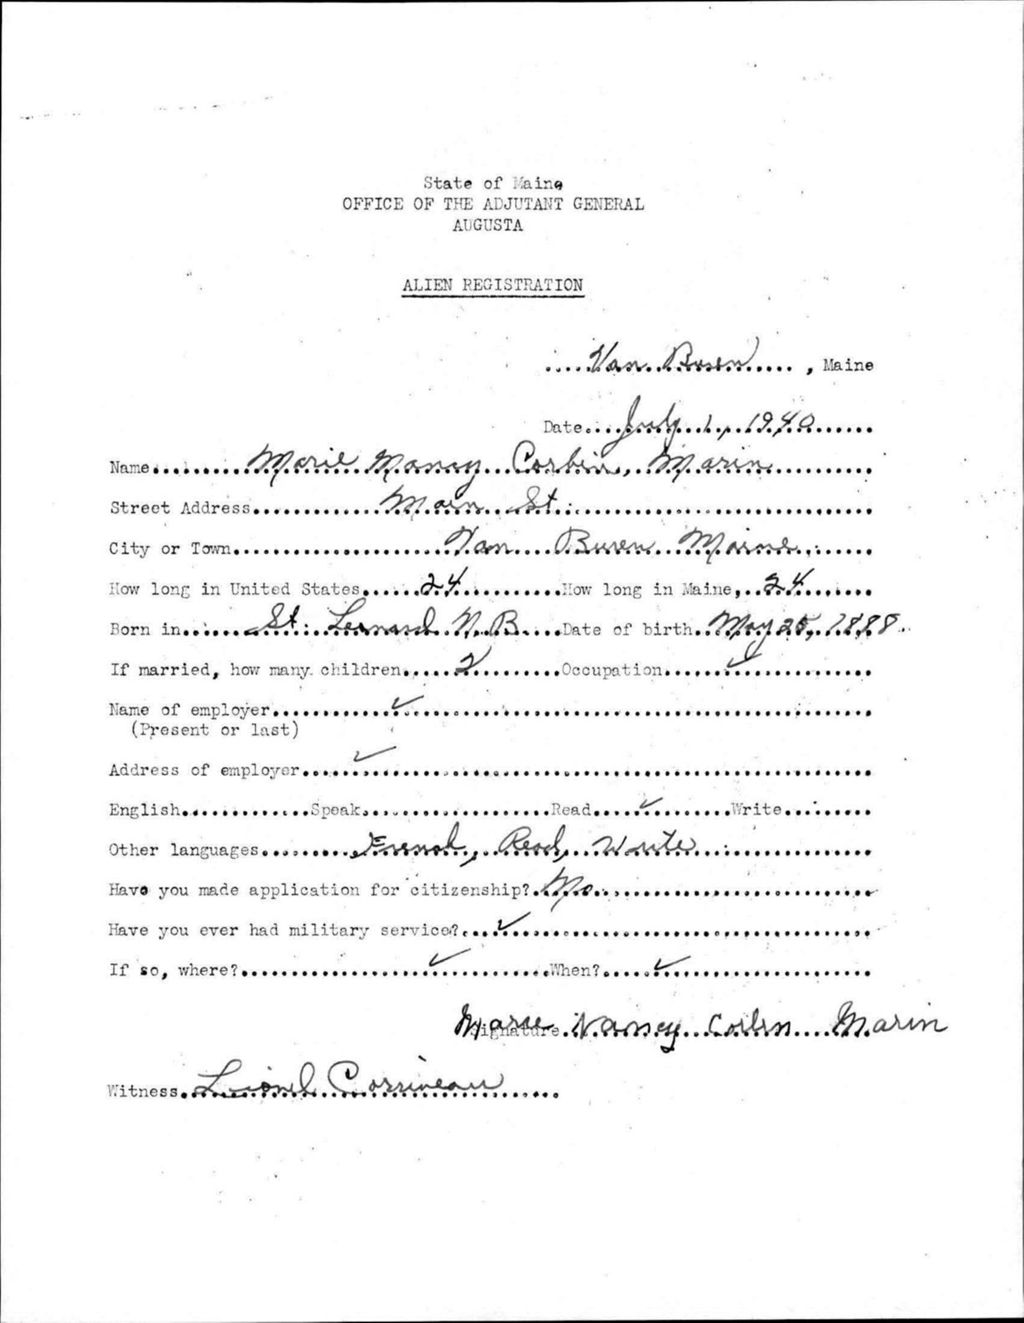 State of Maine
OFFICE OF THE ADJUTANT GENERAL
AUGUSTA
ALIEN REGISTRATION
Van Buren, Maine
Date July 1, 1940
Name Marie Nancy Corbin, Marin
Street Address Main St.
City or Town Van Buren Maine
How long in United States 24 How long in Maine, 24
Born in St. Leonard N.B. Date of birth May 25, 1898
If married, how many children 2 Occupation ✓
Name of employer ✓
(Present or last)
Address of employer ✓
English Speak Read ✓ Write
Other languages French, Read, Write
Have you made application for citizenship? No
Have you ever had military service? ✓
If so, where? ✓ When? ✓
Signature Marie Nancy Corbin Marin
Witness Lionel Corriveau